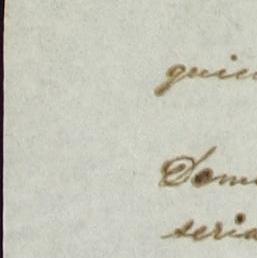 quien
Domi
seria